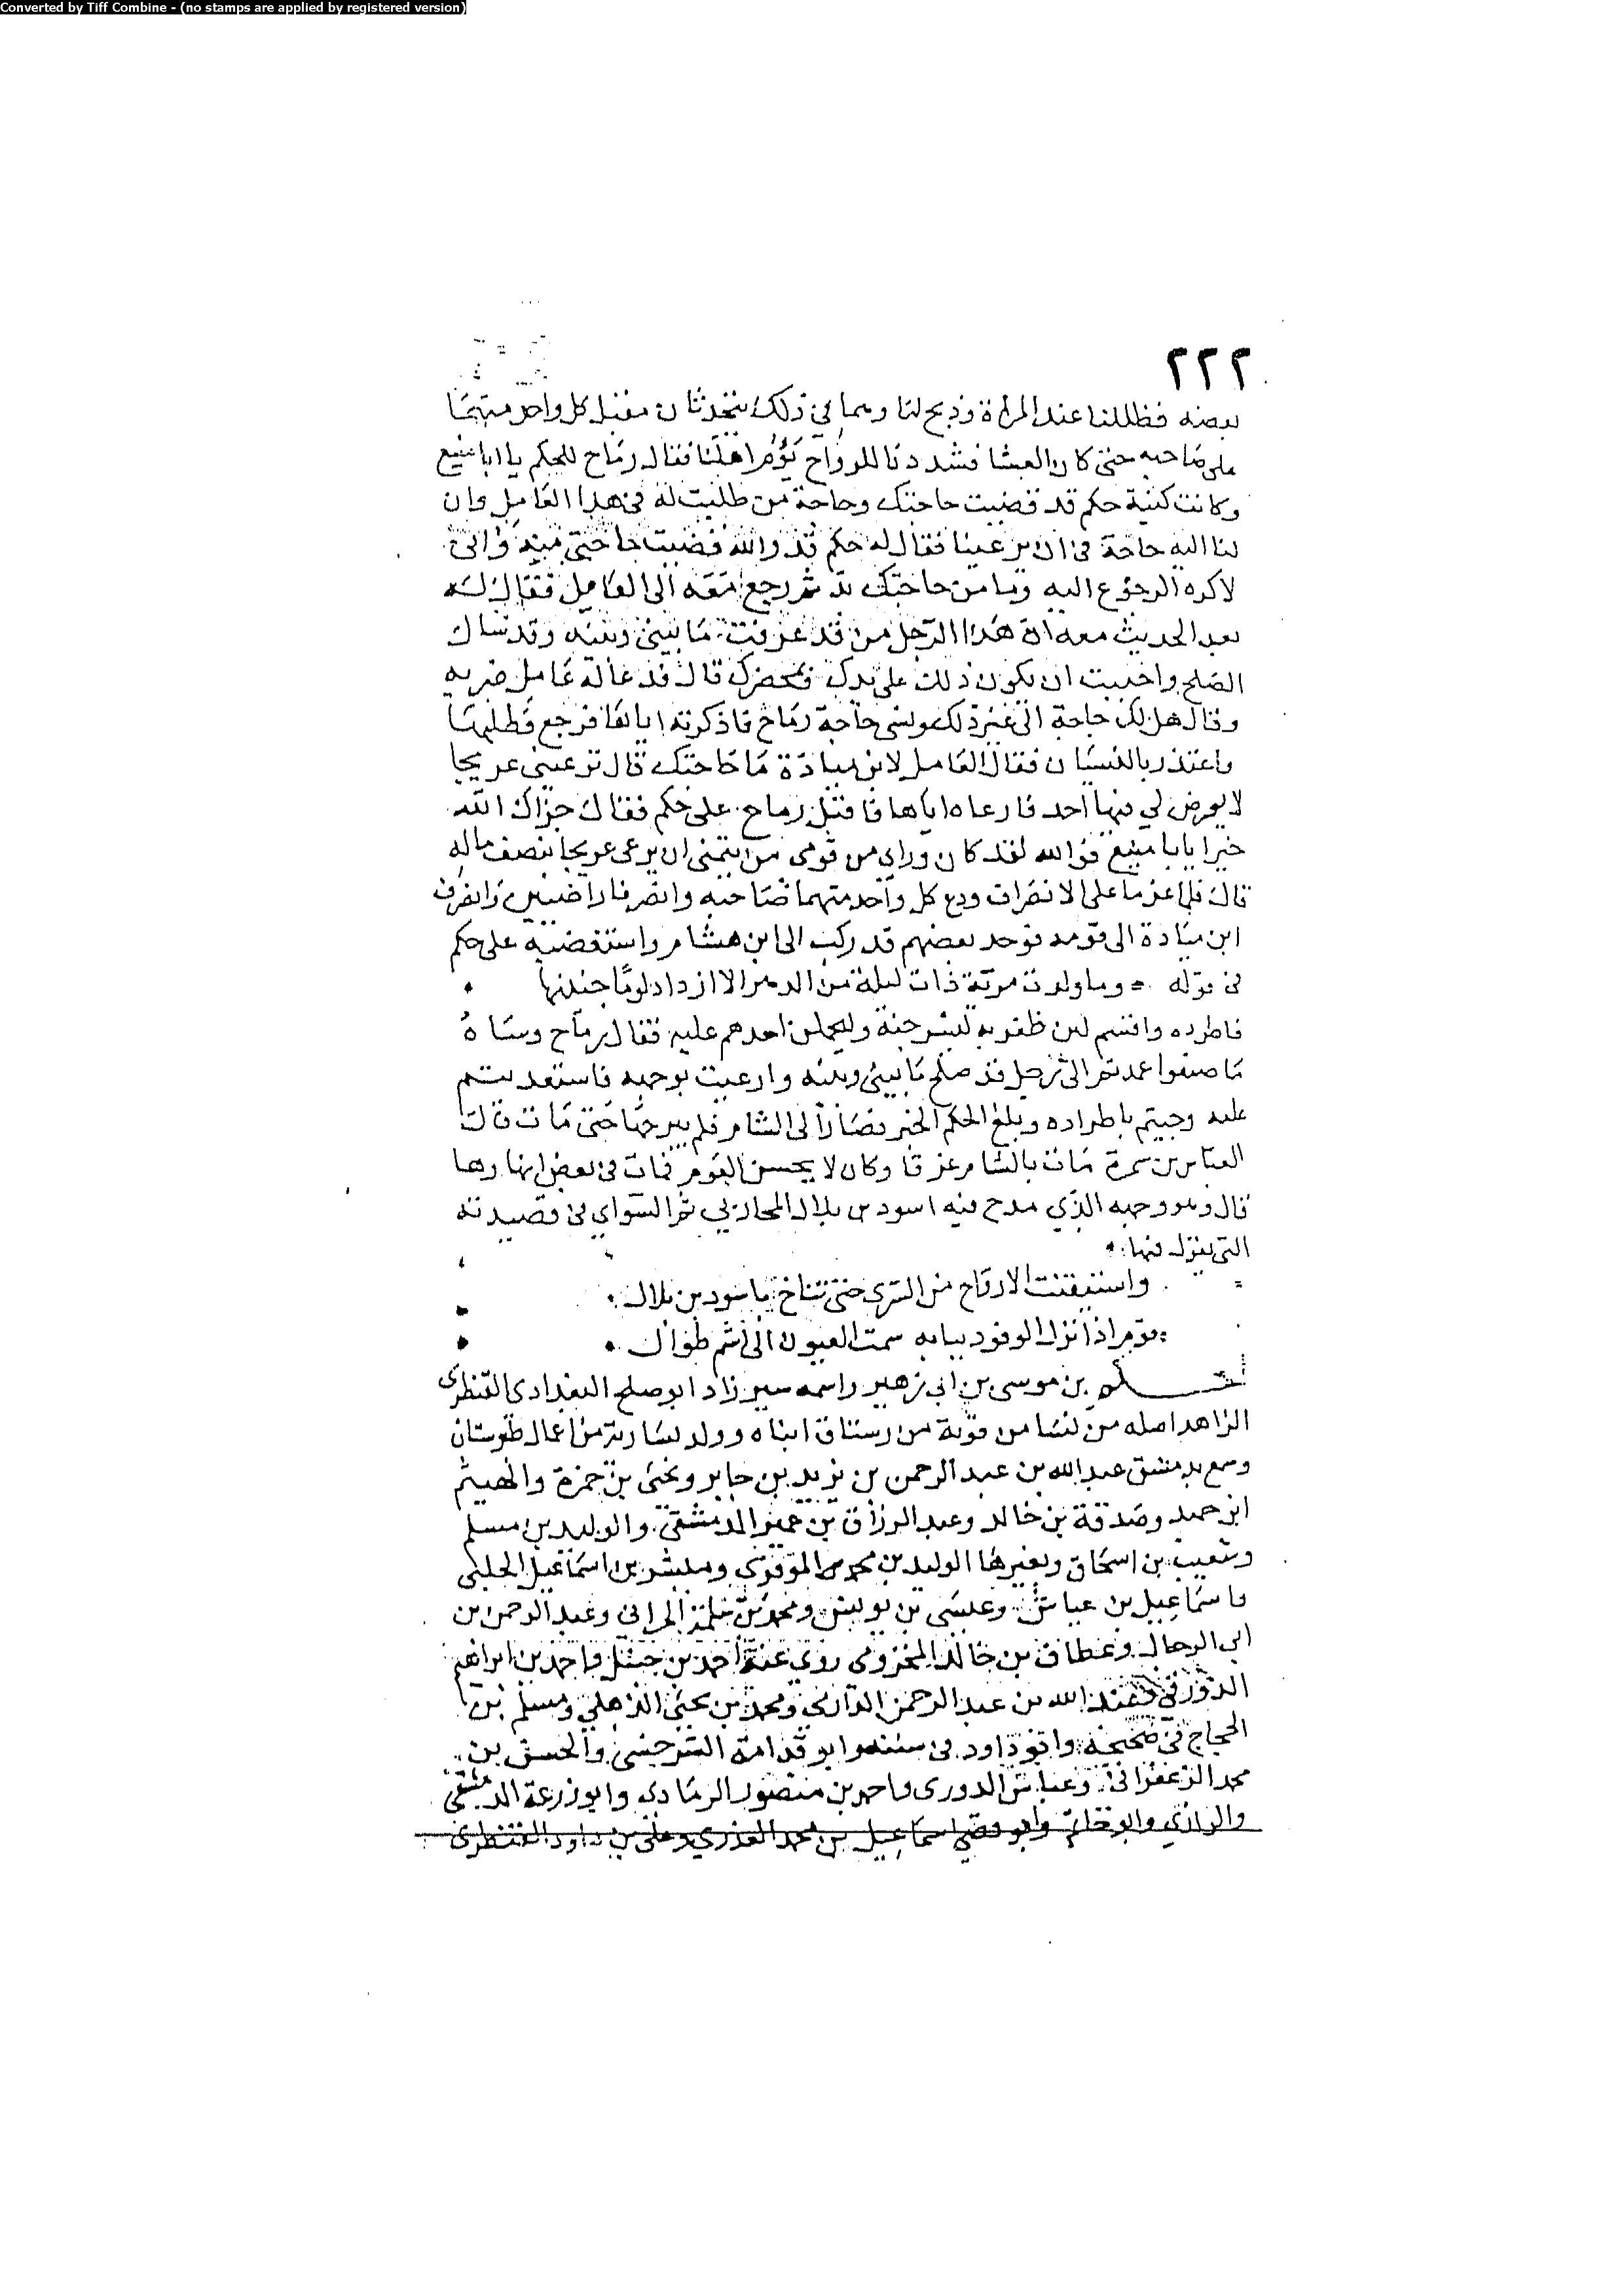 Converted by Tiff Combine - (no stamps are applied by registered version)
٢٢٢
فظللنا عند المراة وذبح لنا وهما في ذلك يتحدثان مقبل كل واحد منهما
على صاحبه حتى كان العشا فشددنا للرواح نؤم اهلنا فقال رماح للحكم يا ابا منيع
وكانت كنية حكم قد قضيت حاجتك وحاجة من طلبت له في هذا العامل وان
لنا اليه حاجة في ان يرعينا فقال له حكم قد والله قضيت حاجتي منه واني
لاكره الرجوع اليه وما من حاجتك بد ثم رجع معه الى العامل فقال له
بعد الحديث معه ان هذا الرجل من قد عرفت ما بيني وبينه وقد سال
الصلح واحببت ان يكون ذلك على يدك وبمحضرك قال فدعا له عامل ضربه
وقال هل لك حاجة الى غير ذلك ونسي حاجة رماح فاذكرته اياها فرجع فطلبها
واعتذر بالنسيان فقال العامل لابن ميادة ما حاجتك قال ترعيني عريجا
لا يعرض لي فيها احد فارعاه اياها فاقبل رماح على حكم فقال جزاك الله
خيرا يا با منيع فوالله لقد كان وراي من قومي من يتمنى ان يرعى عريجا بنصف ماله
قال فلما عزما على الانصراف ودع كل واحد منهما صاحبه وانصرفا راضيين وانصرف
ابن ميادة الى قومه فوجد بعضهم قد ركب الى ابن هشام واستغضبه على حكم
في قوله = وما ولدت مرية ذات ليلة من الدهر الا ازداد لوما جنينها
فاطرده واقسم لين ظفر به ليسرجنه وليحملن احدهم عليه فقال رماح وساه
ما صنعوا عمدتم الى رجل قد صلح ما بيني وبينه وارعيت بوجهه فاستعديتم
عليه وجيتم باطراده وبلغ الحكم الخبر فصار الى الشام فلم يبرحها حتى مات قال
العباس بن سمرة مات بالشام غرقا وكان لا يحسن العوم فمات في بعض انهارها
قال وهو وجهه الذي مدح فيه اسود بن بلال المحاربي ثم السواي في قصيدته
التي يقول فيها
واستيقنت الا رواح من السرى حتى تناخ باسود بن بلال
قوم اذا نزل الوفود ببابه سمت العيون الى اشم طوال
الحكم بن موسى بن ابي زهير واسمه سيرزاد ابو صلح البغدادي القنطري
الزاهد اصله من نسا من قرية من رستاق ابناه وولد بسارية من اعمال طبرستان
وسمع بدمشق عبد الله بن عبد الرحمن بن يزيد بن جابر ويحيى بن حمزة والهيثم
ابن حميد وصدقة بن خالد وعبد الرزاق بن عمر الدمشقي والوليد بن مسلم
وشعيب بن اسحاق وبغيرها الوليد بن محمد الموقري ومبشر بن اسماعيل الحلبي
واسماعيل بن عياش وعيسى بن يونس ومحمد بن سلمة الحراني وعبد الرحمن بن
ابي الرجال وعطاف بن خالد المخزومي روى عنه احمد بن حنبل واحمد بن ابراهيم
الدورقي وعبد الله بن عبد الرحمن الدارمي ومحمد بن يحيى الذهلي ومسلم بن
الحجاج في صحيحه وابو داود في سننه وابو قدامة السرخسي والحسن بن
محمد الزعفراني وعباس الدوري واحمد بن منصور الرمادي وابو زرعة الدمشقي
والرازي وابو حاتم وابو قصي اسماعيل بن محمد العذري وعلي بن داود القنطري